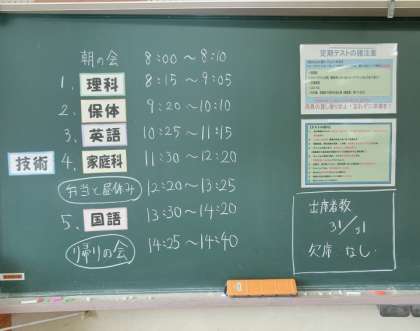 朝の会 8:00〜8:10
1. 理科 8:15〜9:05
2. 保体 9:20〜10:10
3. 英語 10:25〜11:15
技術 4. 家庭科 11:30〜12:20
弁当と昼休み 12:20〜13:25
5. 国語 13:30〜14:20
帰りの会 14:25〜14:40
定期テストの諸注意
出席者数
31/31
欠席 なし